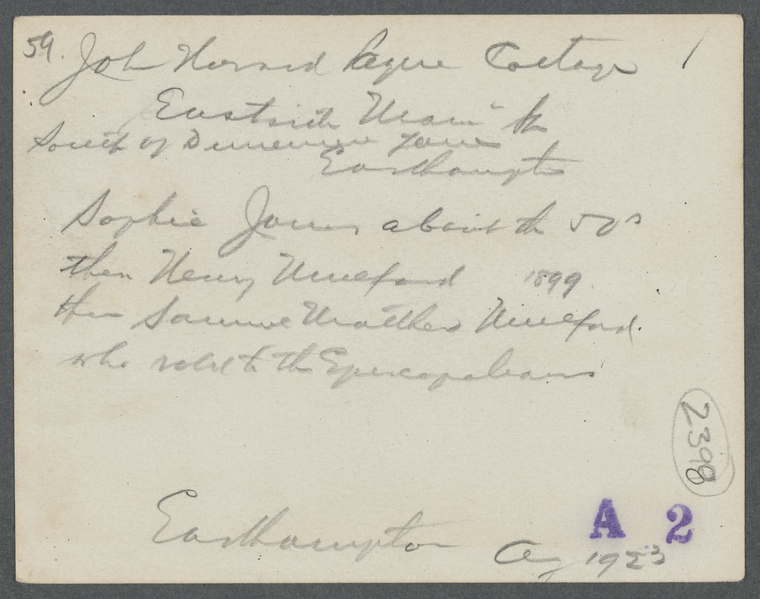 59. John Howard Payne Cottage 1
Eastside Main St
South of Dunemere Lane
Easthampton
Sophie Jones about the 50s
then Henry Mulford 1899
then Samuel Mulford
who sold to the Episcopaleans
2398
A 2
Easthampton Ag 1923